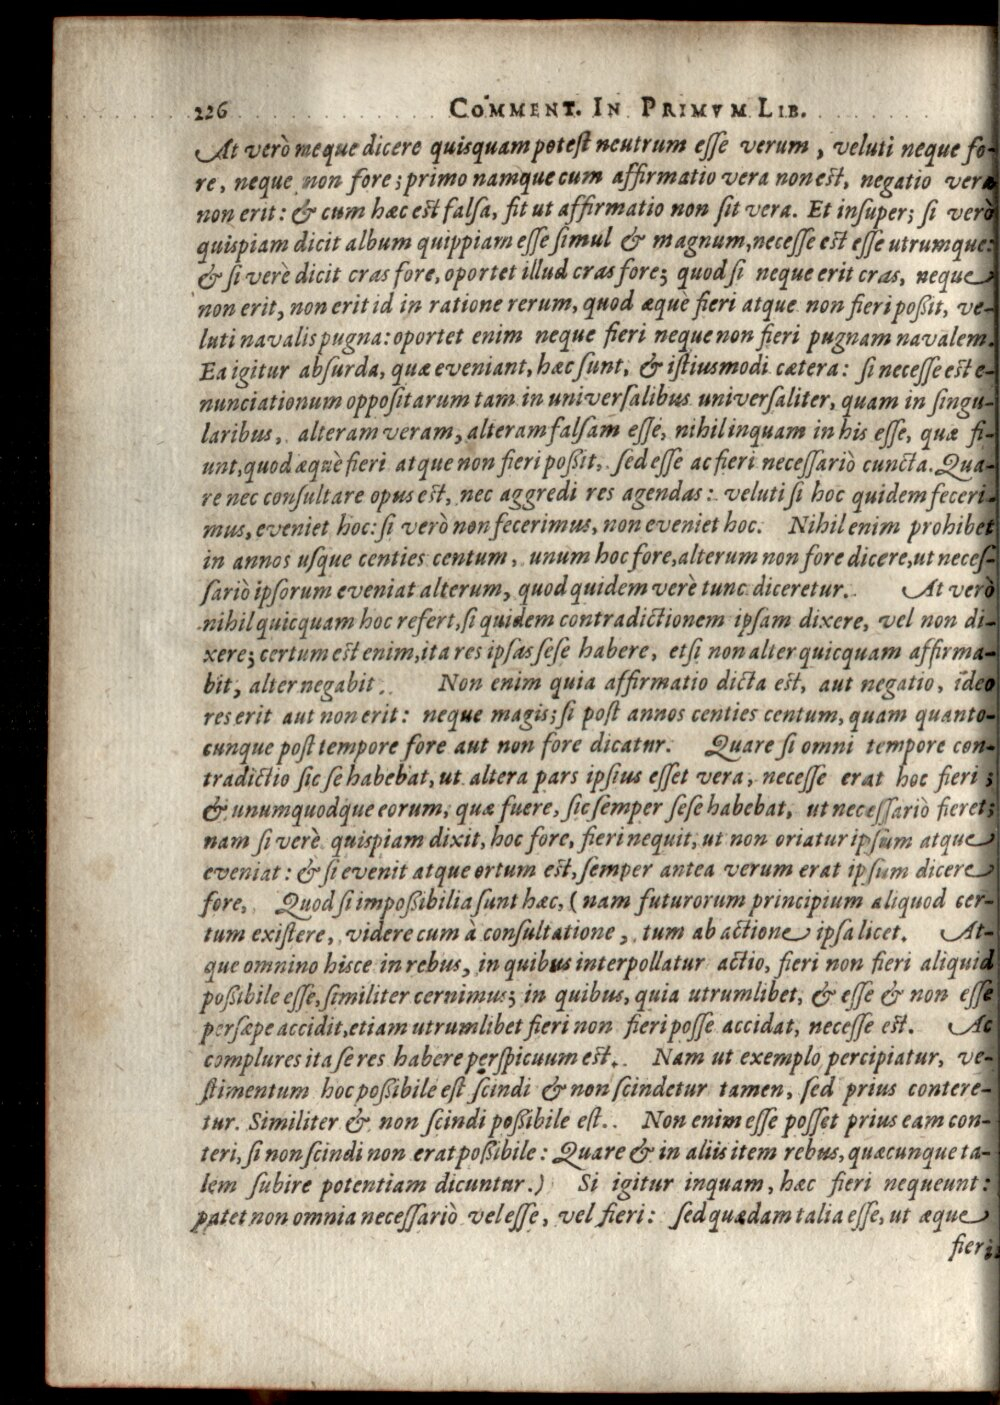 226 COMMENT. IN PRIMVM LIB.
At verò neque dicere quisquam potest neutrum esse verum, veluti neque fo-
re, neque non fore; primo namque cum affirmatio vera non est, negatio vera
non erit: & cum hæc est falsa, fit ut affirmatio non sit vera. Et insuper; si verò
quispiam dicit album quippiam esse simul & magnum, necesse est esse utrumque:
& si verè dicit cras fore, oportet illud cras fore; quod si neque erit cras, neque
non erit, non erit id in ratione rerum, quod æque fieri atque non fieri poßit, ve-
luti navalis pugna: oportet enim neque fieri neque non fieri pugnam navalem.
Ea igitur absurda, quæ eveniant, hæc sunt, & istiusmodi cætera: si necesse est e-
nunciationum oppositarum tam in universalibus universaliter, quam in singu-
laribus, alteram veram, alteram falsam esse, nihil inquam in his esse, quæ fi-
unt, quod æquè fieri atque non fieri poßit, sed esse ac fieri necessariò cuncta. Qua-
re nec consultare opus est, nec aggredi res agendas: veluti si hoc quidem feceri-
mus, eveniet hoc: si verò non fecerimus, non eveniet hoc. Nihil enim prohibet
in annos usque centies centum, unum hoc fore, alterum non fore dicere, ut neces-
sariò ipsorum eveniat alterum, quod quidem verè tunc diceretur. At verò
nihil quicquam hoc refert, si quidem contradictionem ipsam dixere, vel non di-
xere; certum est enim, ita res ipsas sese habere, etsi non alter quicquam affirma-
bit, alter negabit. Non enim quia affirmatio dicta est, aut negatio, ideo
res erit aut non erit: neque magis; si post annos centies centum, quam quanto-
cunque post tempore fore aut non fore dicatur. Quare si omni tempore con-
tradictio sic se habebat, ut altera pars ipsius esset vera, necesse erat hoc fieri;
& unumquodque eorum, quæ fuere, sic semper sese habebat, ut necessariò fieret;
nam si verè quispiam dixit, hoc fore, fieri nequit, ut non oriatur ipsum atque
eveniat: & si evenit atque ortum est, semper antea verum erat ipsum dicere
fore, Quod si impoßibilia sunt hæc, (nam futurorum principium aliquod cer-
tum existere, videre cum à consultatione, tum ab actione ipsa licet. At-
que omnino hisce in rebus, in quibus interpollatur actio, fieri non fieri aliquid
poßibile esse, similiter cernimus; in quibus, quia utrumlibet, & esse & non esse
persæpe accidit, etiam utrumlibet fieri non fieri posse accidat, necesse est. Ac
complures ita se res habere perspicuum est. Nam ut exemplo percipiatur, ve-
stimentum hoc poßibile est scindi & non scindetur tamen, sed prius contere-
tur. Similiter & non scindi poßibile est. Non enim esse posset prius eam con-
teri, si non scindi non erat poßibile: Quare & in aliis item rebus, quæcunque ta-
lem subire potentiam dicuntur.) Si igitur inquam, hæc fieri nequeunt:
patet non omnia necessariò vel esse, vel fieri: sed quædam talia esse, ut æque
fieri